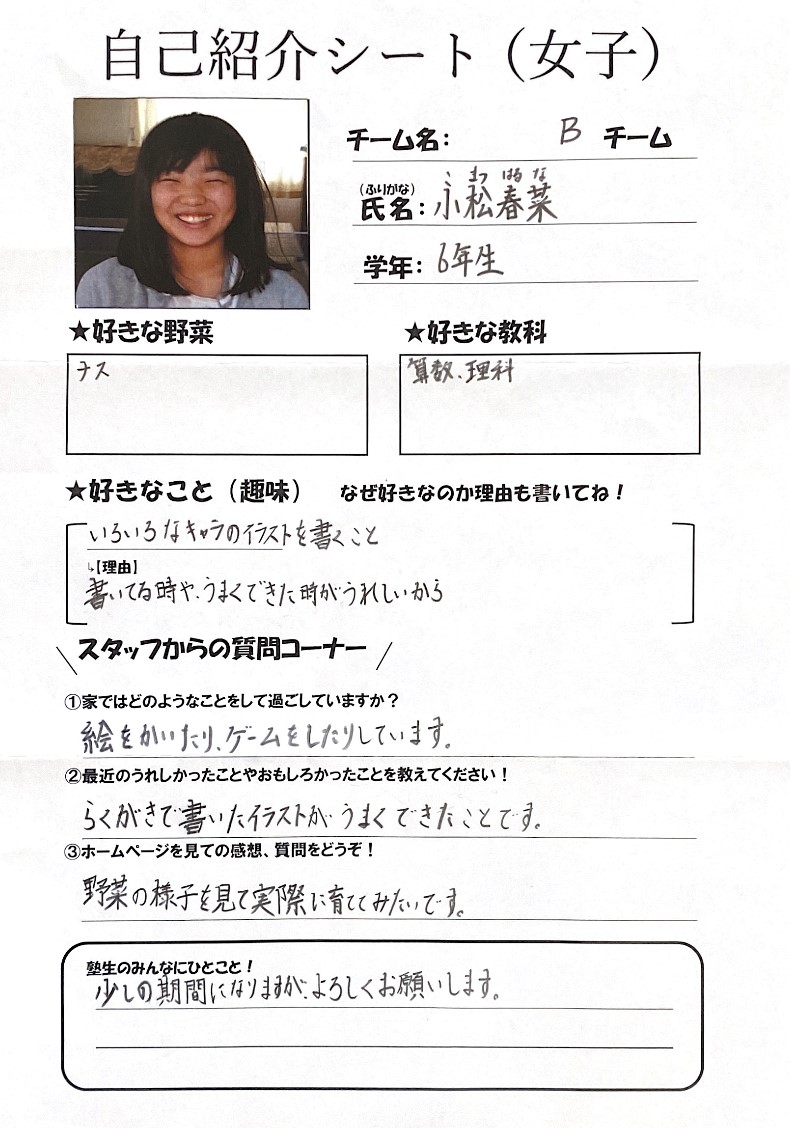 自己紹介シート（女子）
チーム名： B チーム
こまつ はるな
(ふりがな)
氏名：小松春菜
学年：6年生
★好きな野菜
★好きな教科
ナス
算数、理科
★好きなこと（趣味） なぜ好きなのか理由も書いてね！
いろいろなキャラのイラストを書くこと
↳【理由】
書いてる時や、うまくできた時がうれしいから
\ スタッフからの質問コーナー /
①家ではどのようなことをして過ごしていますか？
絵をかいたり、ゲームをしたりしています。
②最近のうれしかったことやおもしろかったことを教えてください！
らくがきで書いたイラストが うまくできたことです。
③ホームページを見ての感想、質問をどうぞ！
野菜の様子を見て実際に育ててみたいです。
塾生のみんなにひとこと！
少しの期間になりますが、よろしくお願いします。